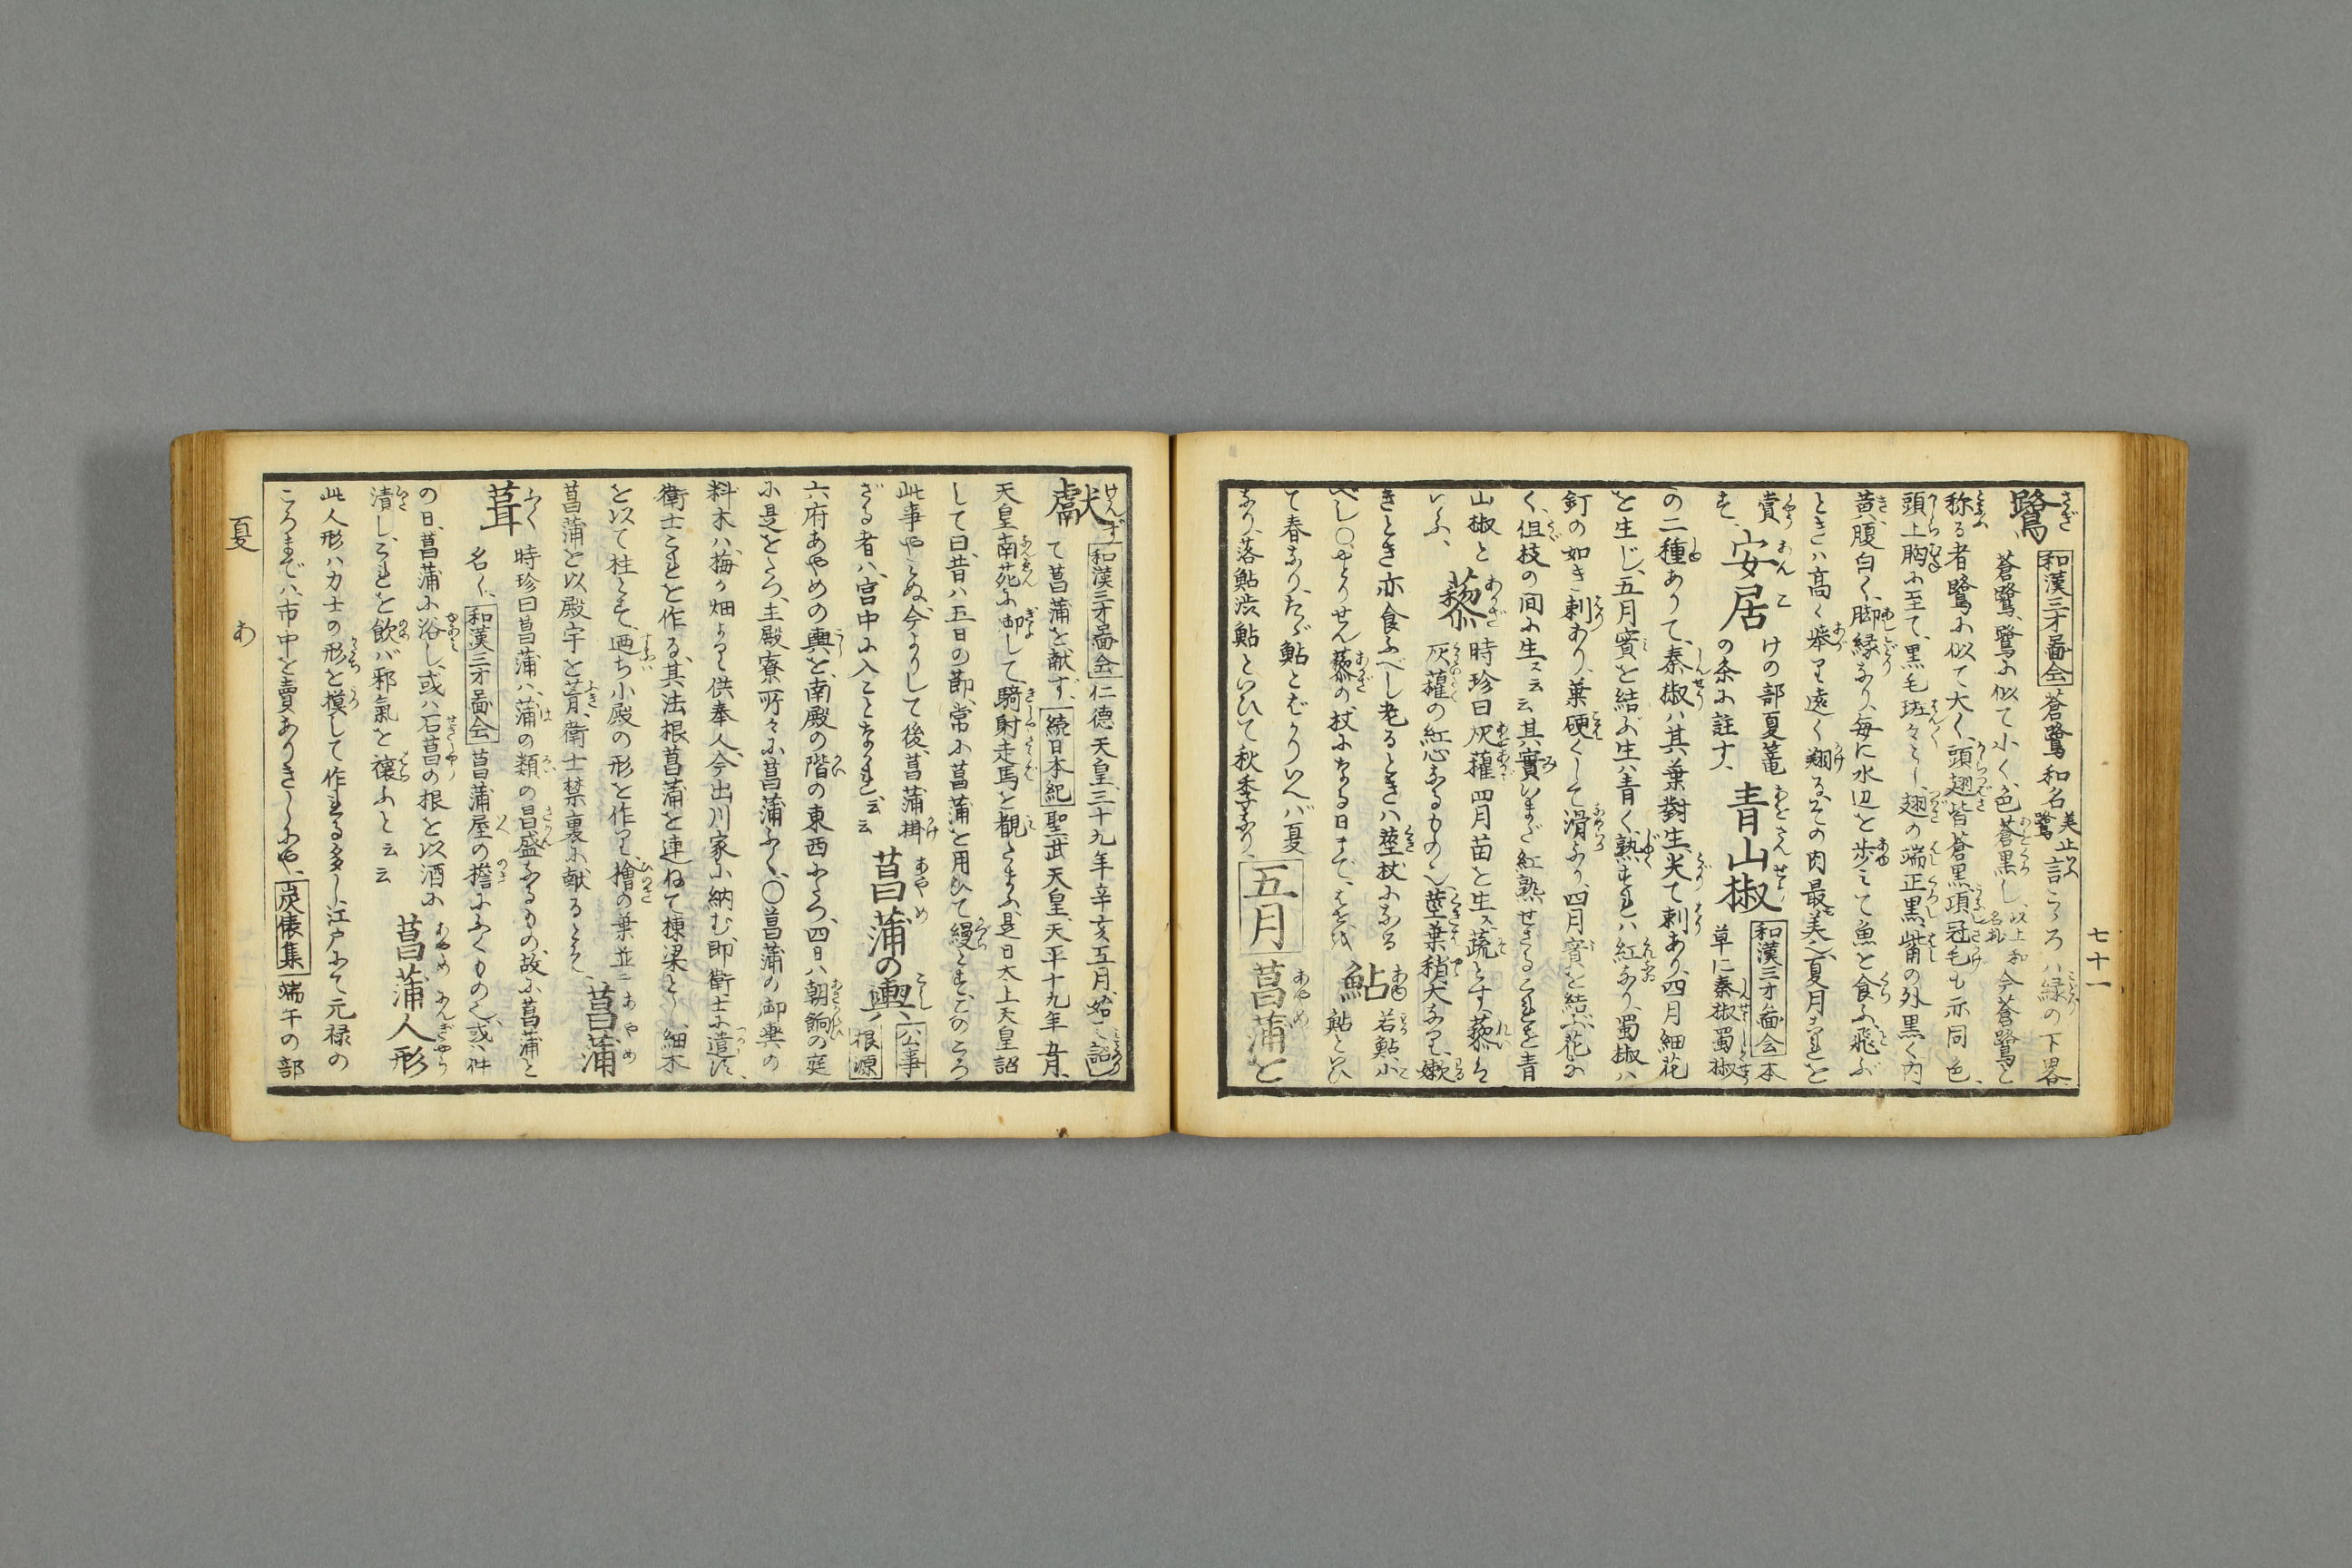 七十一
鷺 和漢三才畵会 蒼鷺 和名美止鷺 言こゝろハ緑の下畧
蒼鷺、鷺に似て小く、色蒼黒し、以上和名抄 今蒼鷺と
称る者鷺に似て大く、頭翅皆蒼黒、項冠毛も亦同色、
頭上胸に至て、黒毛斑々とし、翅の端正黒、觜の外黒く内
黄、腹白く、脚緑なり、毎に水辺を歩ミて魚を食ふ、飛ぶ
ときハ高く挙り遠く翔る、その肉最美也、夏月これを
賞す、安居 けの部夏篭の条に註す、青山椒 和漢三才畵会 本草に秦椒蜀椒
の二種ありて、秦椒ハ其葉對生、尖て刺あり、四月細花
を生じ、五月實を結ぶ、生ハ青く、熟すれハ紅なり、蜀椒ハ
釘の如き刺あり、葉硬くして滑なり、四月實を結ぶ、花な
く、但枝の間に生ズ云云其實いまだ紅熟せざるこれを青
山椒と
いふ、藜 時珍曰灰藋四月苗を生ズ蔬とす、藜ハ
灰藋の紅心なるもの也、莖葉稍大なり、嫩
きとき亦食ふべし老るときハ莖杖になる
べし○やとりせん藜の杖になる日まで、はせを 鮎 若鮎、小鮎といひ
て春なり、たゞ鮎とばかりいへバ夏
なり、落鮎渋鮎といひて秋季なり、五月 菖蒲を
獻ず 和漢三才畵会 仁徳天皇三十九年辛亥五月、始て詔し
て菖蒲を献ず、続日本紀 聖武天皇、天平十九年五月、
天皇南苑に御して、騎射走馬を觀たまふ、是日太上天皇詔
して曰、昔ハ五日の節、常に菖蒲を用ひて縵とす、このころ
此事やミぬ、今よりして後、菖蒲掛
ざる者ハ、宮中に入ことなかれ云云 菖蒲の輿、公事根源
六府あやめの輿を、南殿の階の東西にたつ、四日ハ朝餉の庭
に是をたつ、主殿寮所々に菖蒲ふく、○菖蒲の御輿の
料木ハ、梅が畑より供奉人、今出川家に納む、即衛士に遣ハす、
衛士これを作る、其法根菖蒲を連ねて棟梁とし、細木
を以て柱とす、廼ち小殿の形を作り、檜の葉並ニ
菖蒲を以殿宇を葺、衛士禁裏に献るとぞ、菖蒲
葺 時珍曰菖蒲ハ、蒲の類の昌盛なるもの、故に菖蒲と
名く、和漢三才畵会 菖蒲屋の檐にふくもの也、或ハ件
の日、菖蒲に浴し、或ハ石菖の根を以酒に
漬し、これを飲バ邪氣を禳ふと云云 菖蒲人形
此人形ハ力士の形を模して作れる多し、江戸にて元禄の
ころまでハ、市中を賣ありきしにや、炭俵集 端午の部
夏 あ